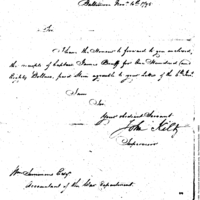 Baltimore Nov. 4th 1795
Sir
I have the Honor to forward to you enclosed,
the receipts of Captain James Bruff, for two Hundred (and
Eighty Dollars, paid him agreeable to your Letter of the
I am
Sir
Your obedient Servant
John Kilty
Supervisor
Wm Simmons Esqr
Accountant of the War Department